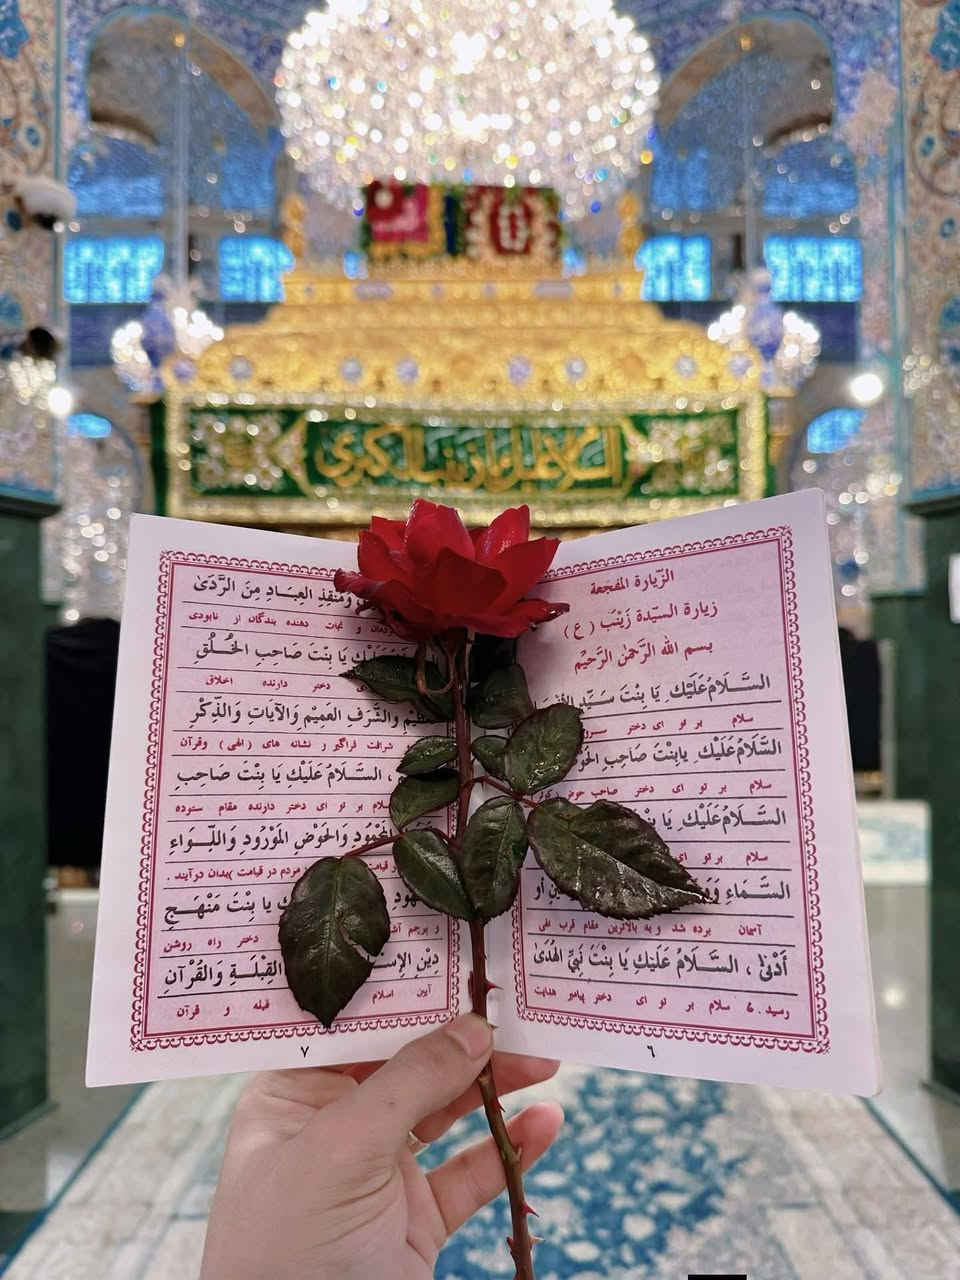 السلام عليك يا زينب الكبرى
الزّيارة المفجعة
زيارة السيّدة زَيْنَب (ع)
بسم الله الرّحمٰن الرّحيْم
السَّلَامُ عَلَيْكِ يَا بِنْتَ سَيِّدِ
سلام بر تو ای دختر
السَّلَامُ عَلَيْكِ يا بِنْتَ صَاحِبِ
سلام بر تو ای دختر صاحب حوض
السَّلَامُ عَلَيْكِ يَا
سلام بر تو ای
السَّمَاءِ أو
آسمان برده شد و به بالاترین مقام قرب الهی
أَدْنىٰ ، السَّلَامُ عَلَيْكِ يَا بِنْتَ نَبِيِّ الهُدَىٰ
رسید . ۶ سلام بر تو ای دختر پیامبر هدایت
٦
وَمُنْقِذِ العِبَادِ مِنَ الرَّدَىٰ
و نجات دهنده بندگان از نابودی
يَا بِنْتَ صَاحِبِ الخُلُقِ
دختر دارنده اخلاق
وَالشَّرَفِ العَمِيْمِ وَالآيَاتِ وَالذِّكْرِ
شرافت فراگیر و نشانه های (الهی) وقرآن
، السَّلَامُ عَلَيْكِ يَا بِنْتَ صَاحِبِ
سلام بر تو ای دختر دارنده مقام ستوده
وَالحَوْضِ المَوْرُودِ وَاللِّوَاءِ
مردم در قیامت بدان درآیند .
يا بِنْتَ مَنْهَجِ
و پرچم دختر راه روشن
دِيْنِ القِبْلَةِ وَالقُرْآنِ
آیین اسلام قبله و قرآن
٧